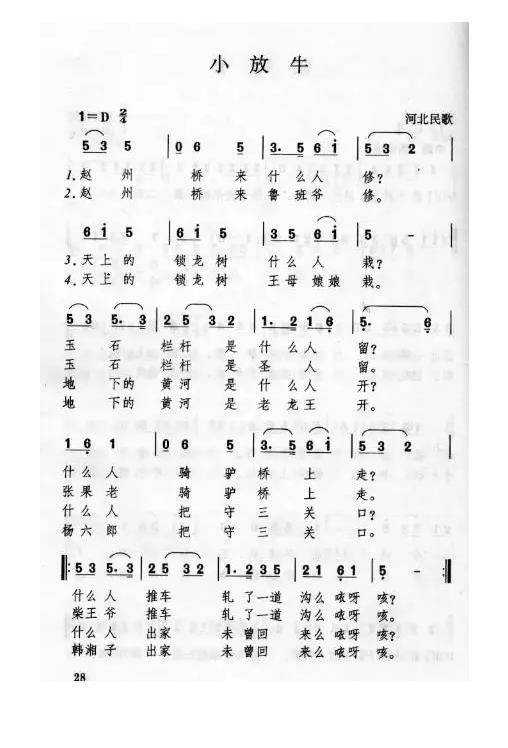 小放牛
1=D 2/4 河北民歌
5 3 5 | 0 6 5 | 3. 5 6 i | 5 3 2 |
1.赵州桥来什么人修？
2.赵州桥来鲁班爷修。
6 i 5 | 6 i 5 | 3. 5 6 i | 5 3 2 |
3.天上的锁龙树什么人栽？
4.天上的锁龙树王母娘娘栽。
5 3 5. 3 | 2 5 3 2 | 1. 2 1 6 | 5. 6 |
玉石栏杆是什么人留？
玉石栏杆是圣人留。
地下的黄河是什么人开？
地下的黄河是老龙王开。
1 6 1 | 0 6 5 | 3. 5 6 i | 5 3 2 |
什么人骑驴桥上走？
张果老骑驴桥上走。
什么人把守三关口？
杨六郎把守三关口。
5 3 5. 3 | 2 3 5 | 1. 2 3 5 | 2 1 6 1 | 5 - :|
什么人推车轧了一道沟么咴呀咳？
柴王爷推车轧了一道沟么咴呀咳。
什么人出家未曾回来么咴呀咳？
韩湘子出家未曾回来么咴呀咳。
28